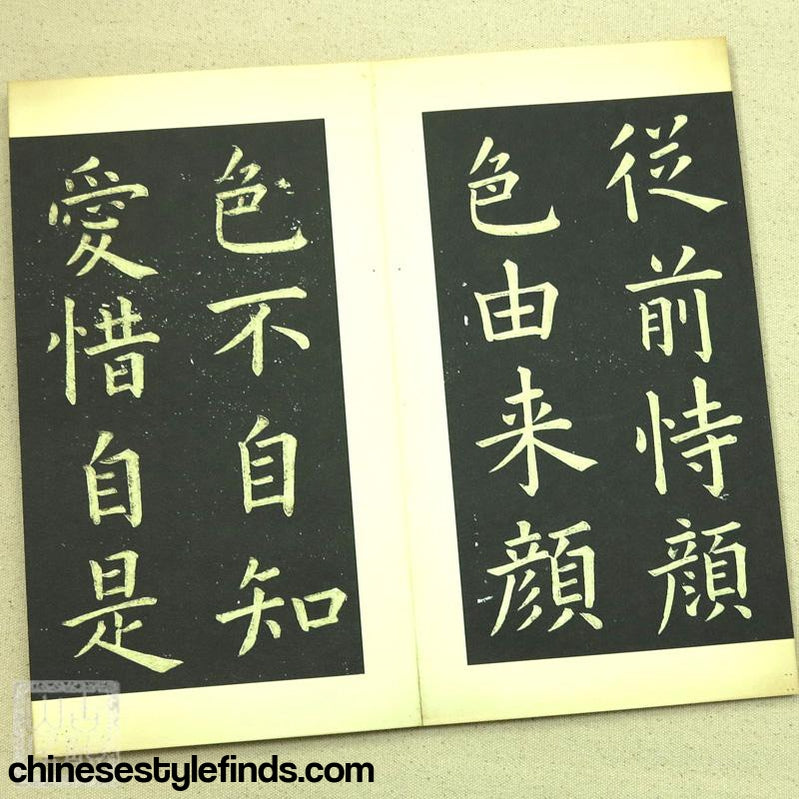 従前恃顔
色由来顔
色不自知
愛惜自是
chinesestylefinds.com